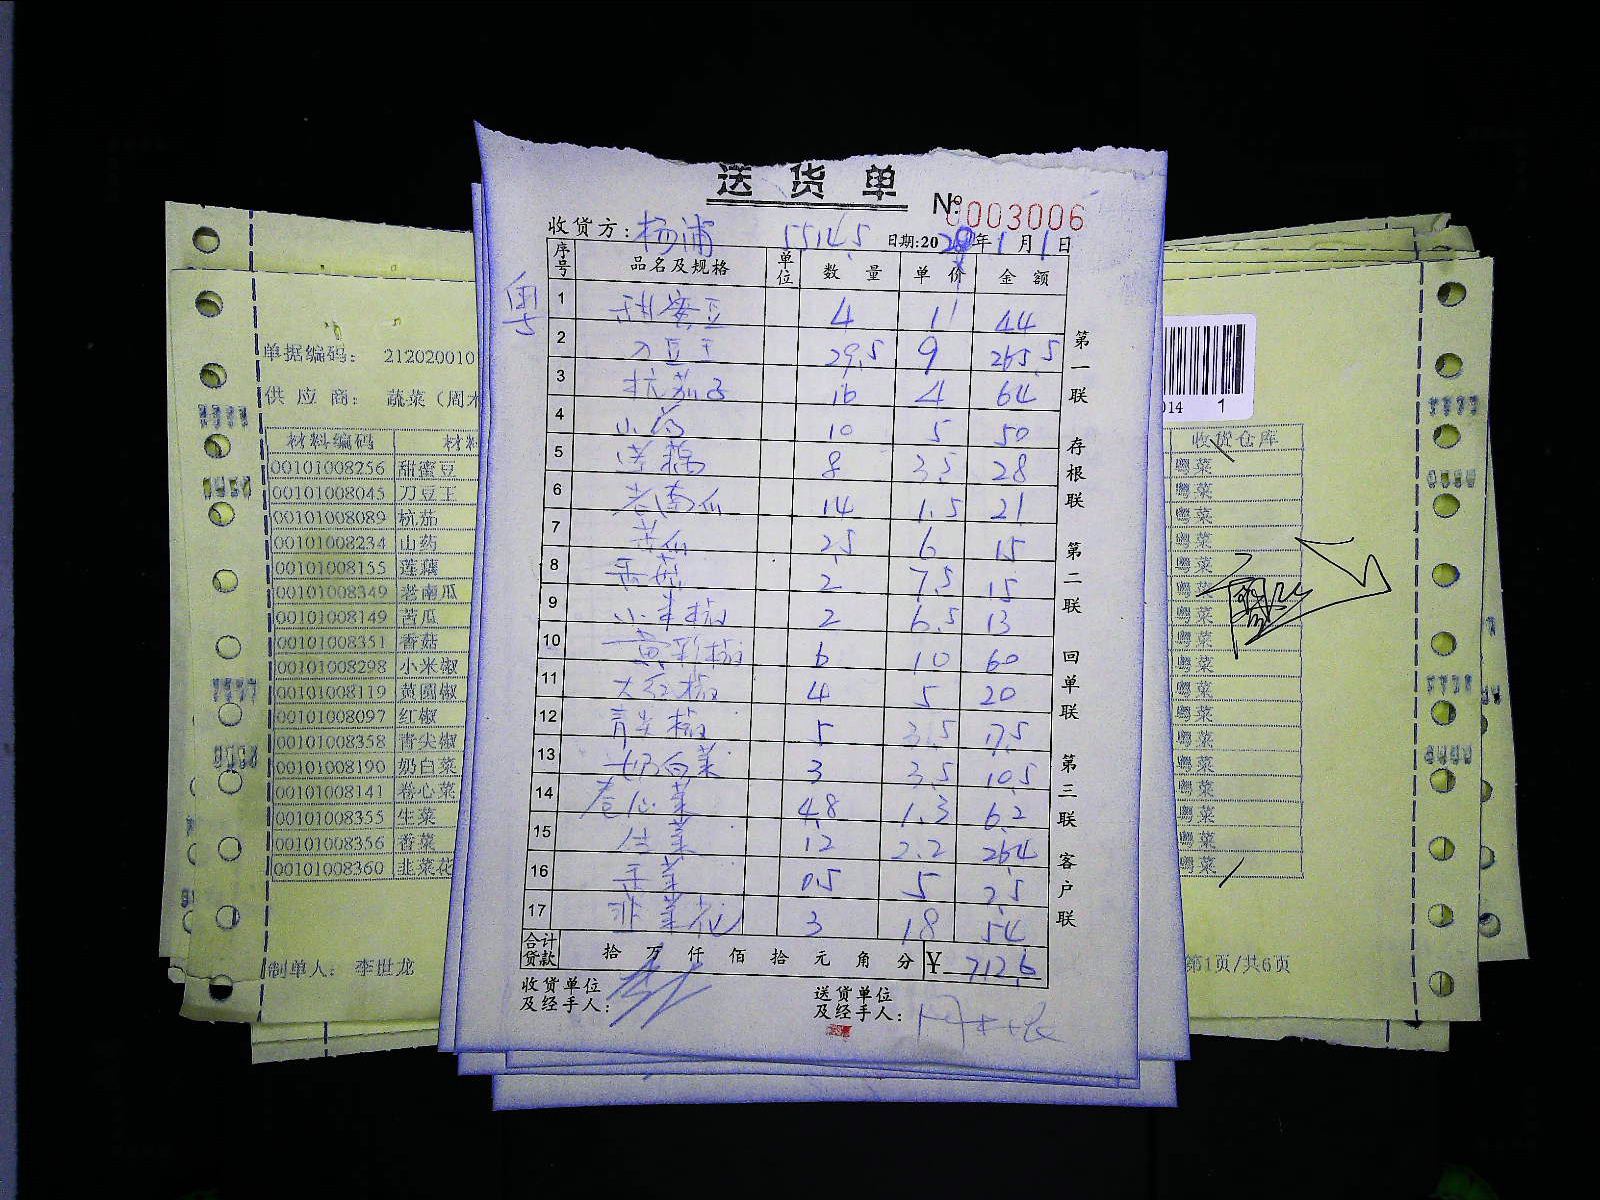 送货单
№0003006
收货方: 杨浦 5514.5 日期:2020年1月1日
粤
序号 品名及规格 单位 数量 单价 金额
1 甜蜜豆 4 11 44
2 刀豆王 29.5 9 265.5
3 杭茄子 16 4 64
4 山药 10 5 50
5 莲藕 8 3.5 28
6 老南瓜 14 1.5 21
7 苦瓜 2.5 6 15
8 香菇 2 7.5 15
9 小米椒 2 6.5 13
10 黄彩椒 6 10 60
11 大红椒 4 5 20
12 青尖椒 5 3.5 17.5
13 奶白菜 3 3.5 10.5
14 卷心菜 4.8 1.3 6.2
15 生菜 12 2.2 26.4
16 香菜 0.5 5 2.5
17 韭菜花 3 18 54
合计货款 拾 万 仟 佰 拾 元 角 分 ¥ 712.6
收货单位及经手人:
送货单位及经手人:
第一联 存根联 第二联 回单联 第三联 客户联
单据编码: 212020010
供应商: 蔬菜（周
材料编码
00101008256 甜蜜豆
00101008045 刀豆王
00101008089 杭茄
00101008234 山药
00101008155 莲藕
00101008349 老南瓜
00101008149 苦瓜
00101008351 香菇
00101008298 小米椒
00101008119 黄圆椒
00101008097 红椒
00101008358 青尖椒
00101008190 奶白菜
00101008141 卷心菜
00101008355 生菜
00101008356 香菜
00101008360 韭菜花
制单人: 李世龙
014 1
收货仓库
粤菜
粤菜
粤菜
粤菜
粤菜
粤菜
粤菜
粤菜
粤菜
粤菜
粤菜
粤菜
粤菜
粤菜
粤菜
粤菜
粤菜
第1页/共6页